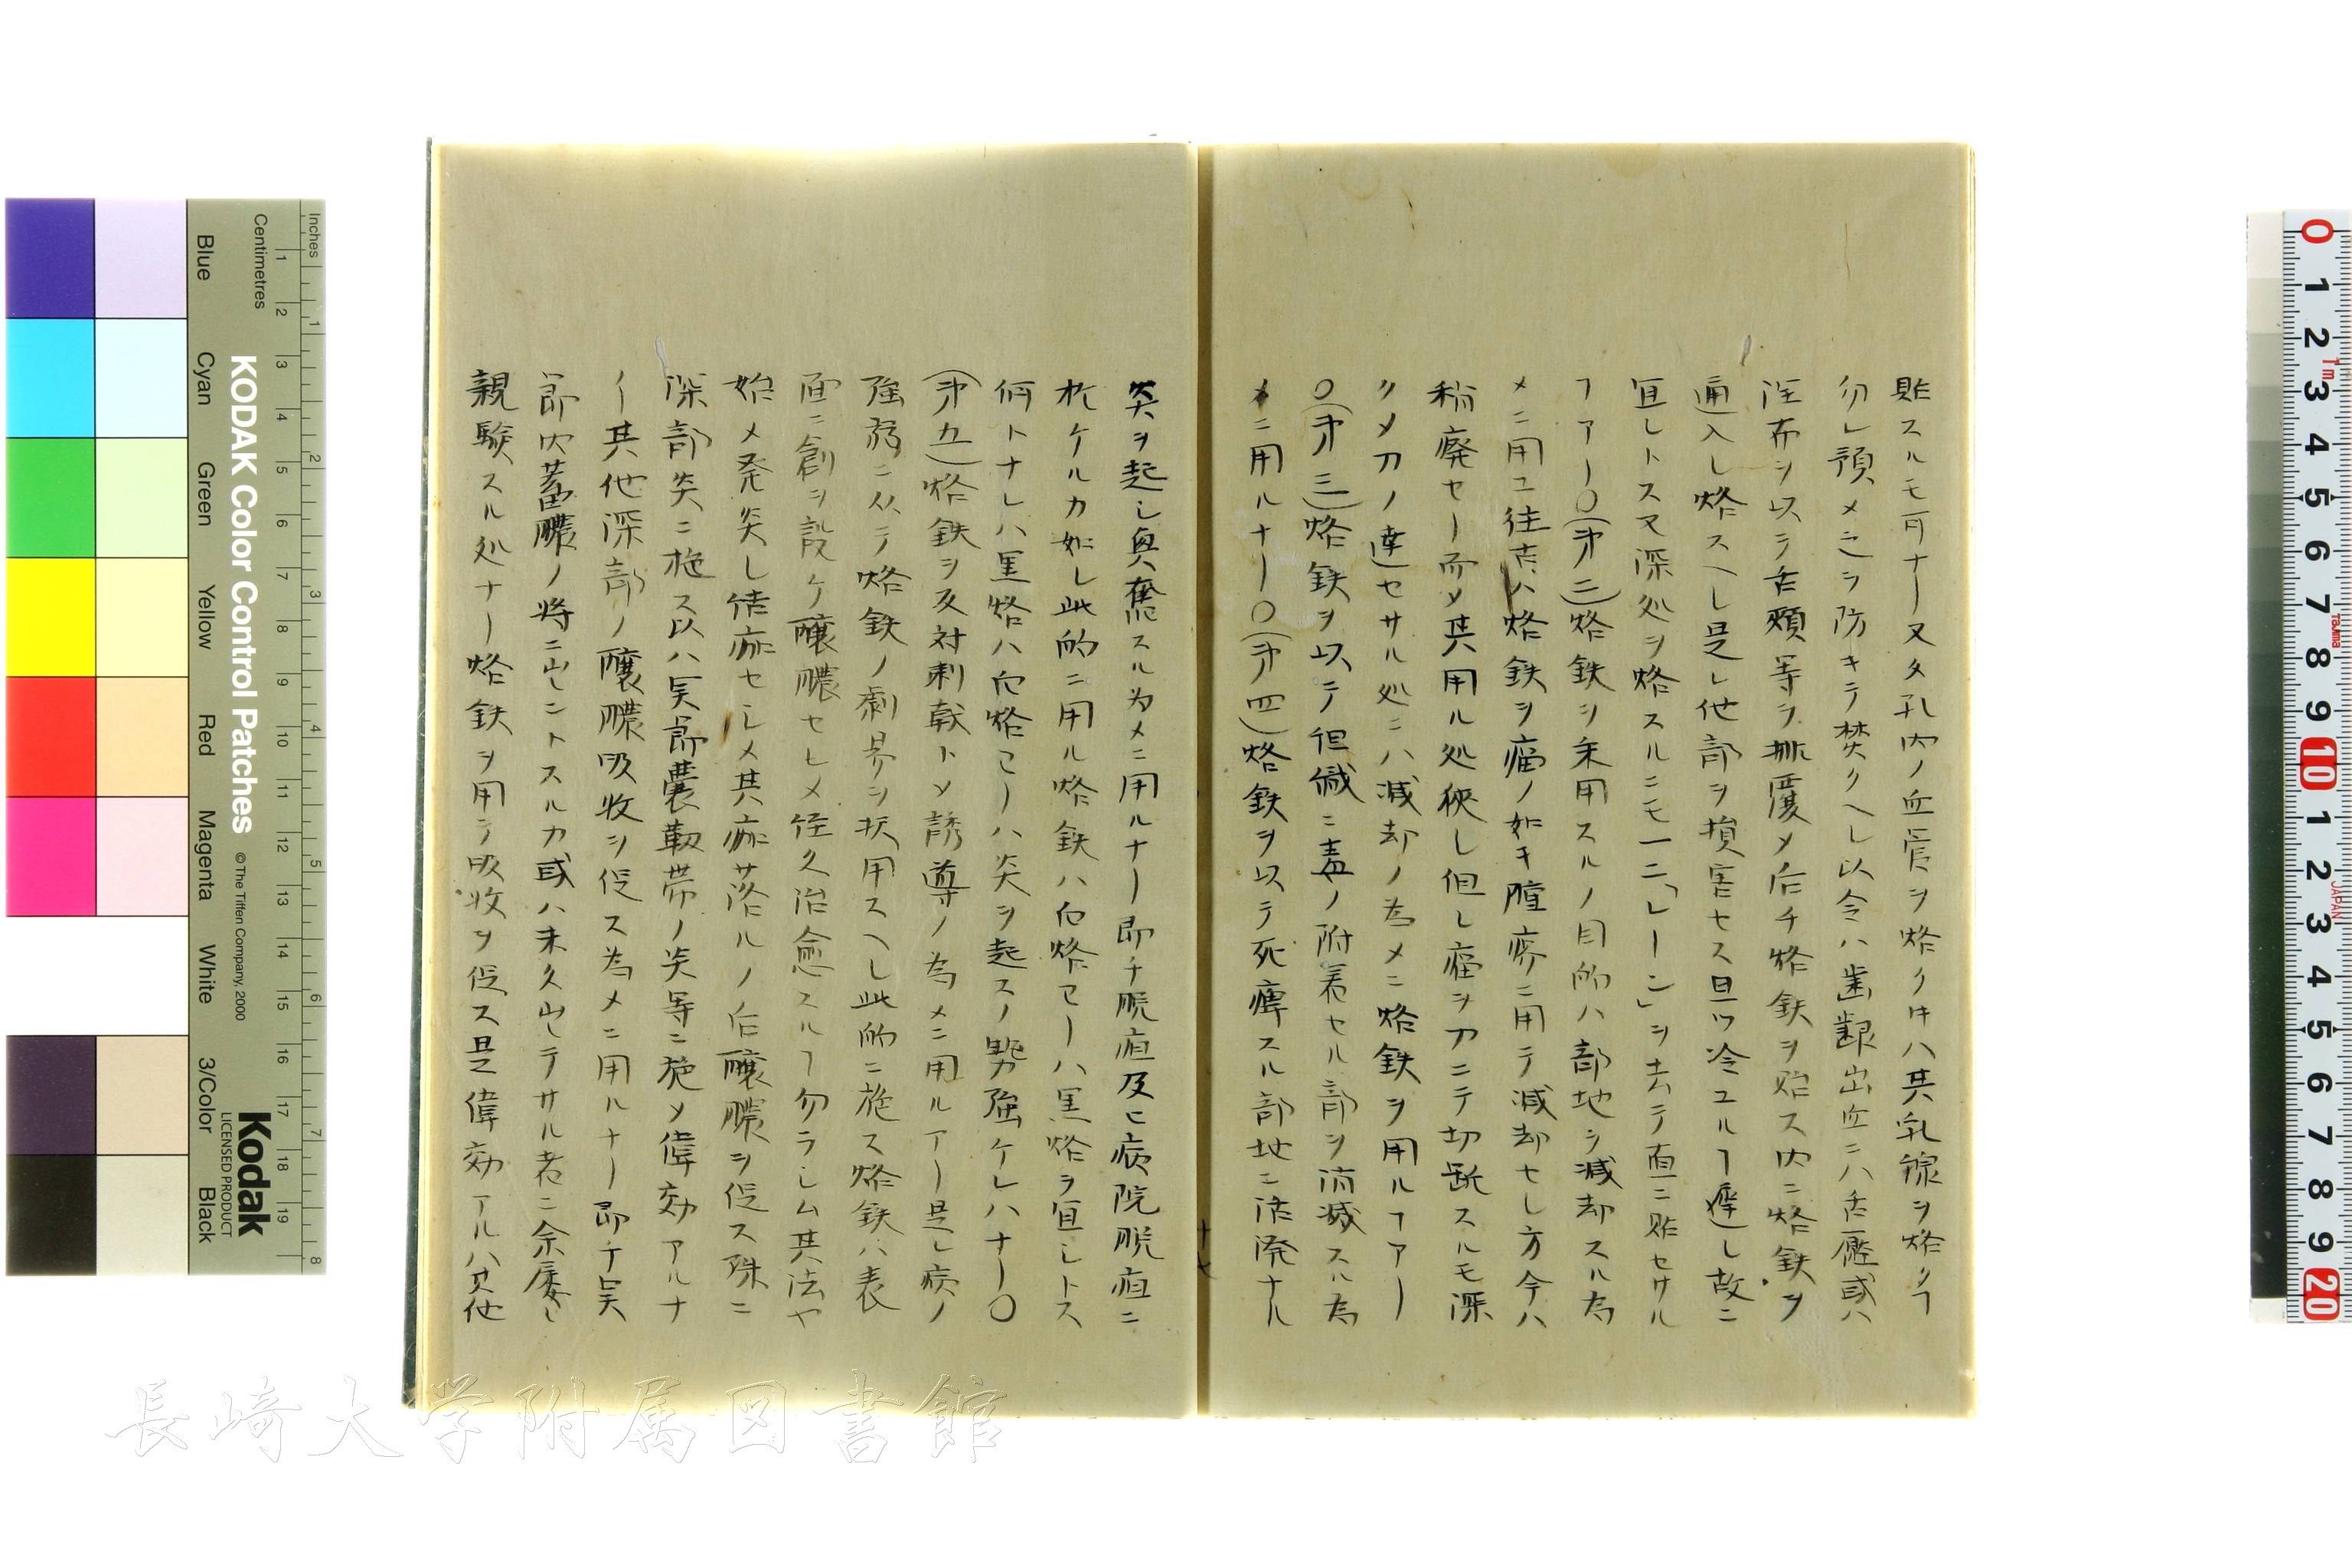 貼スルモ可ナー又タ孔内ノ血管ヲ烙クㇵ其乳線ヲ烙クヿ
勿レ預メ之ヲ防キテ焚クヘし以令ハ歯齦出血ニハ舌唇或ハ
湿布ヲ以テ舌頬等ヲ掩覆メ后チ烙鉄ヲ貼ス内ニ烙鉄ヲ
通入し烙スヘし是レ他部ヲ損害セス且ツ冷ユルヿ遅し故ニ
宜しトス又深処ヲ烙スルニモ一二「レーン」ヲ去テ直ニ貼セサル
ヿアー〇(㐧二)烙鉄ヲ釆用スルノ目的ハ部地ヲ減却スル為
メニ用ユ往古ハ烙鉄ヲ癌ノ如キ腫瘍ニ用テ減却セし方今ハ
稍廃セー而メ其用ル処狭し但し癌ヲ刀ニテ切断スルモ深
クメ刀ノ達セサル処ニハ減却ノ為メニ烙鉄ヲ用ルヿアー
〇(㐧三)烙鉄ヲ以テ但緘ニ毒ノ附着セル部ヲ消滅スル為
メニ用ルナー〇(㐧四)烙鉄ヲ以テ死痺スル部地ニ活溌ナル
十七
炎ヲ起し奥奮スル為メニ用ルナー即チ脱疽及ヒ病院脱疽ニ
於ケルカ如し此的ニ用ル烙鉄ハ白烙ヨーハ黒烙ヲ宜しトス
何トナレハ黒烙ハ白烙ヨーハ炎ヲ起スノ勢強ケレハナー〇
(㐧五)烙鉄ヲ反対刺戟トメ誘導ノ為メニ用ルアー是レ病ノ
強弱ニ从テ烙鉄ノ劇易ヲ択用スヘし此的ニ施ス烙鉄ハ表
面ニ創ヲ設ケ醸膿セしメ径久治愈スルヿ勿ラしム其法ヤ
始メ発炎し結痂セしメ其痂サ落ルノ后醸膿ヲ促ス殊ニ
深部炎ニ施ス以ハ関節嚢靱帯ノ炎等ニ施メ偉効アルナ
ー其他深部ノ醸膿吸收ヲ促ス為メニ用ルナー即チ関
節内蓄膿ノ将ニ出しントスルカ或ハ未久出しテサル者ニ余屡し
親験スル処ナー烙鉄ヲ用テ吸收ヲ促ス是偉効アルハ其他
Inches
Centimetres
KODAK Color Control Patches
© The Tiffen Company, 2000
Kodak
LICENSED PRODUCT
Blue
Cyan
Green
Yellow
Red
Magenta
White
3/Color
Black
長崎大学附属図書館